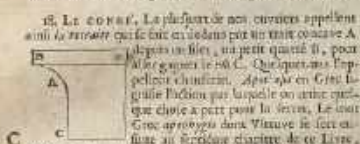 18. LE CONGÉ. La pluspart de nos ouvriers appellent
ainsi la retraite qui se fait en dedans par un trait concave A
depuis un filet, ou petit quarré B, pour
aller gagner le nû C. Quelques-uns l'appellent
chanfrein. en Grec
l'action par laquelle on
que chose à part pour la serrer. Le mot
Grec apophygis dont Vitruve se sert
au chapitre de ce Livre,
B
A
C
C